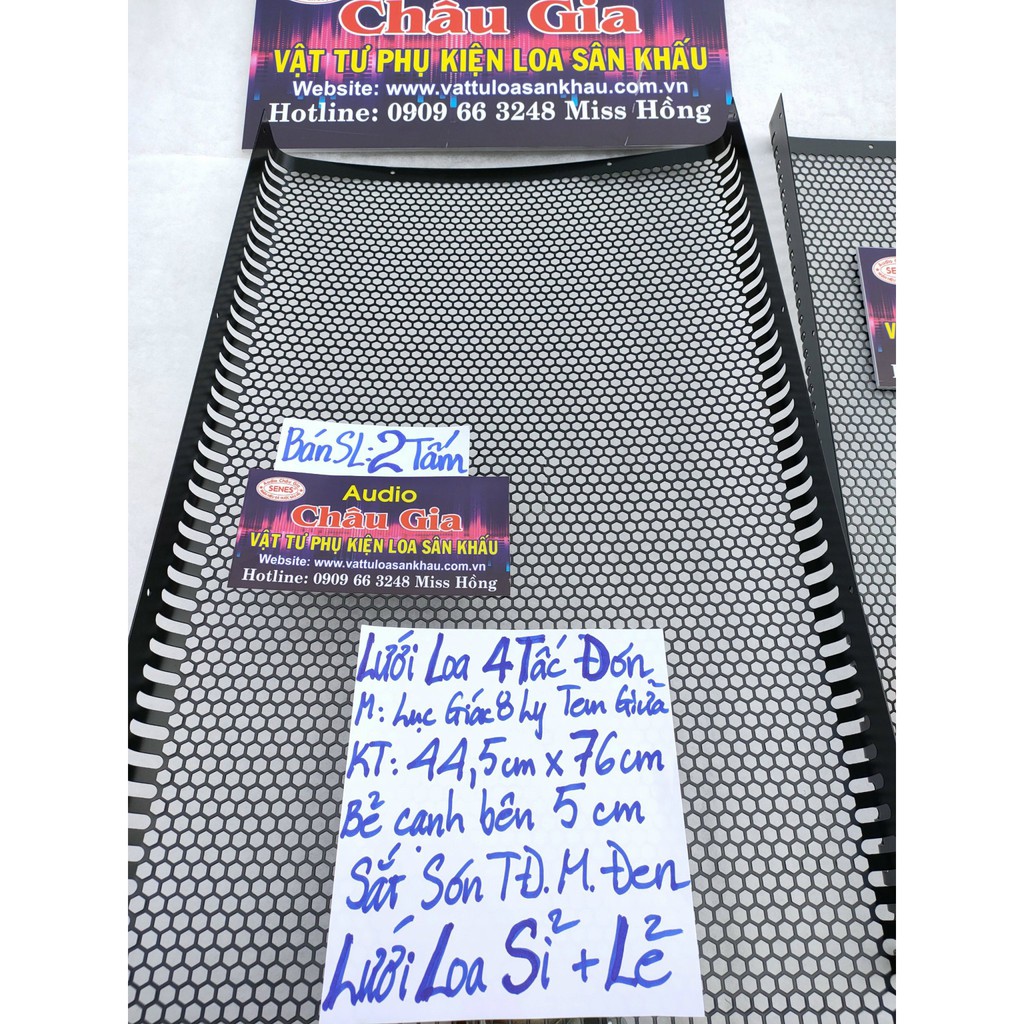 Châu Gia
VẬT TƯ PHỤ KIỆN LOA SÂN KHẤU
Website: www.vattuloasankhau.com.vn
Hotline: 0909 66 3248 Miss Hồng
Bán SL: 2 Tấm
SENES
Audio
Châu Gia
VẬT TƯ PHỤ KIỆN LOA SÂN KHẤU
Website: www.vattuloasankhau.com.vn
Hotline: 0909 66 3248 Miss Hồng
Lưới Loa 4 Tấc Đơn
M: Lục Giác 8 Ly Tem Giữa
KT: 44,5cm x 76cm
Bẻ cạnh bên 5 cm
Sắt Sơn TĐ.M.Đen
Lưới Loa Sỉ + Lẻ